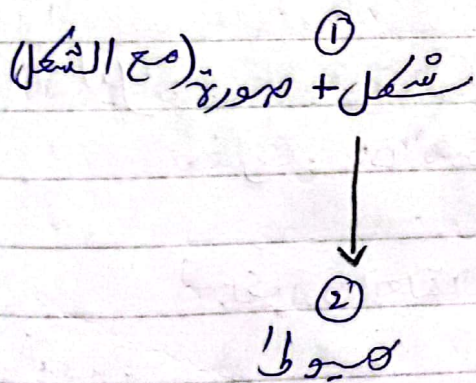 ①
شكل + صورة (مع الشكل)
②
هيولا